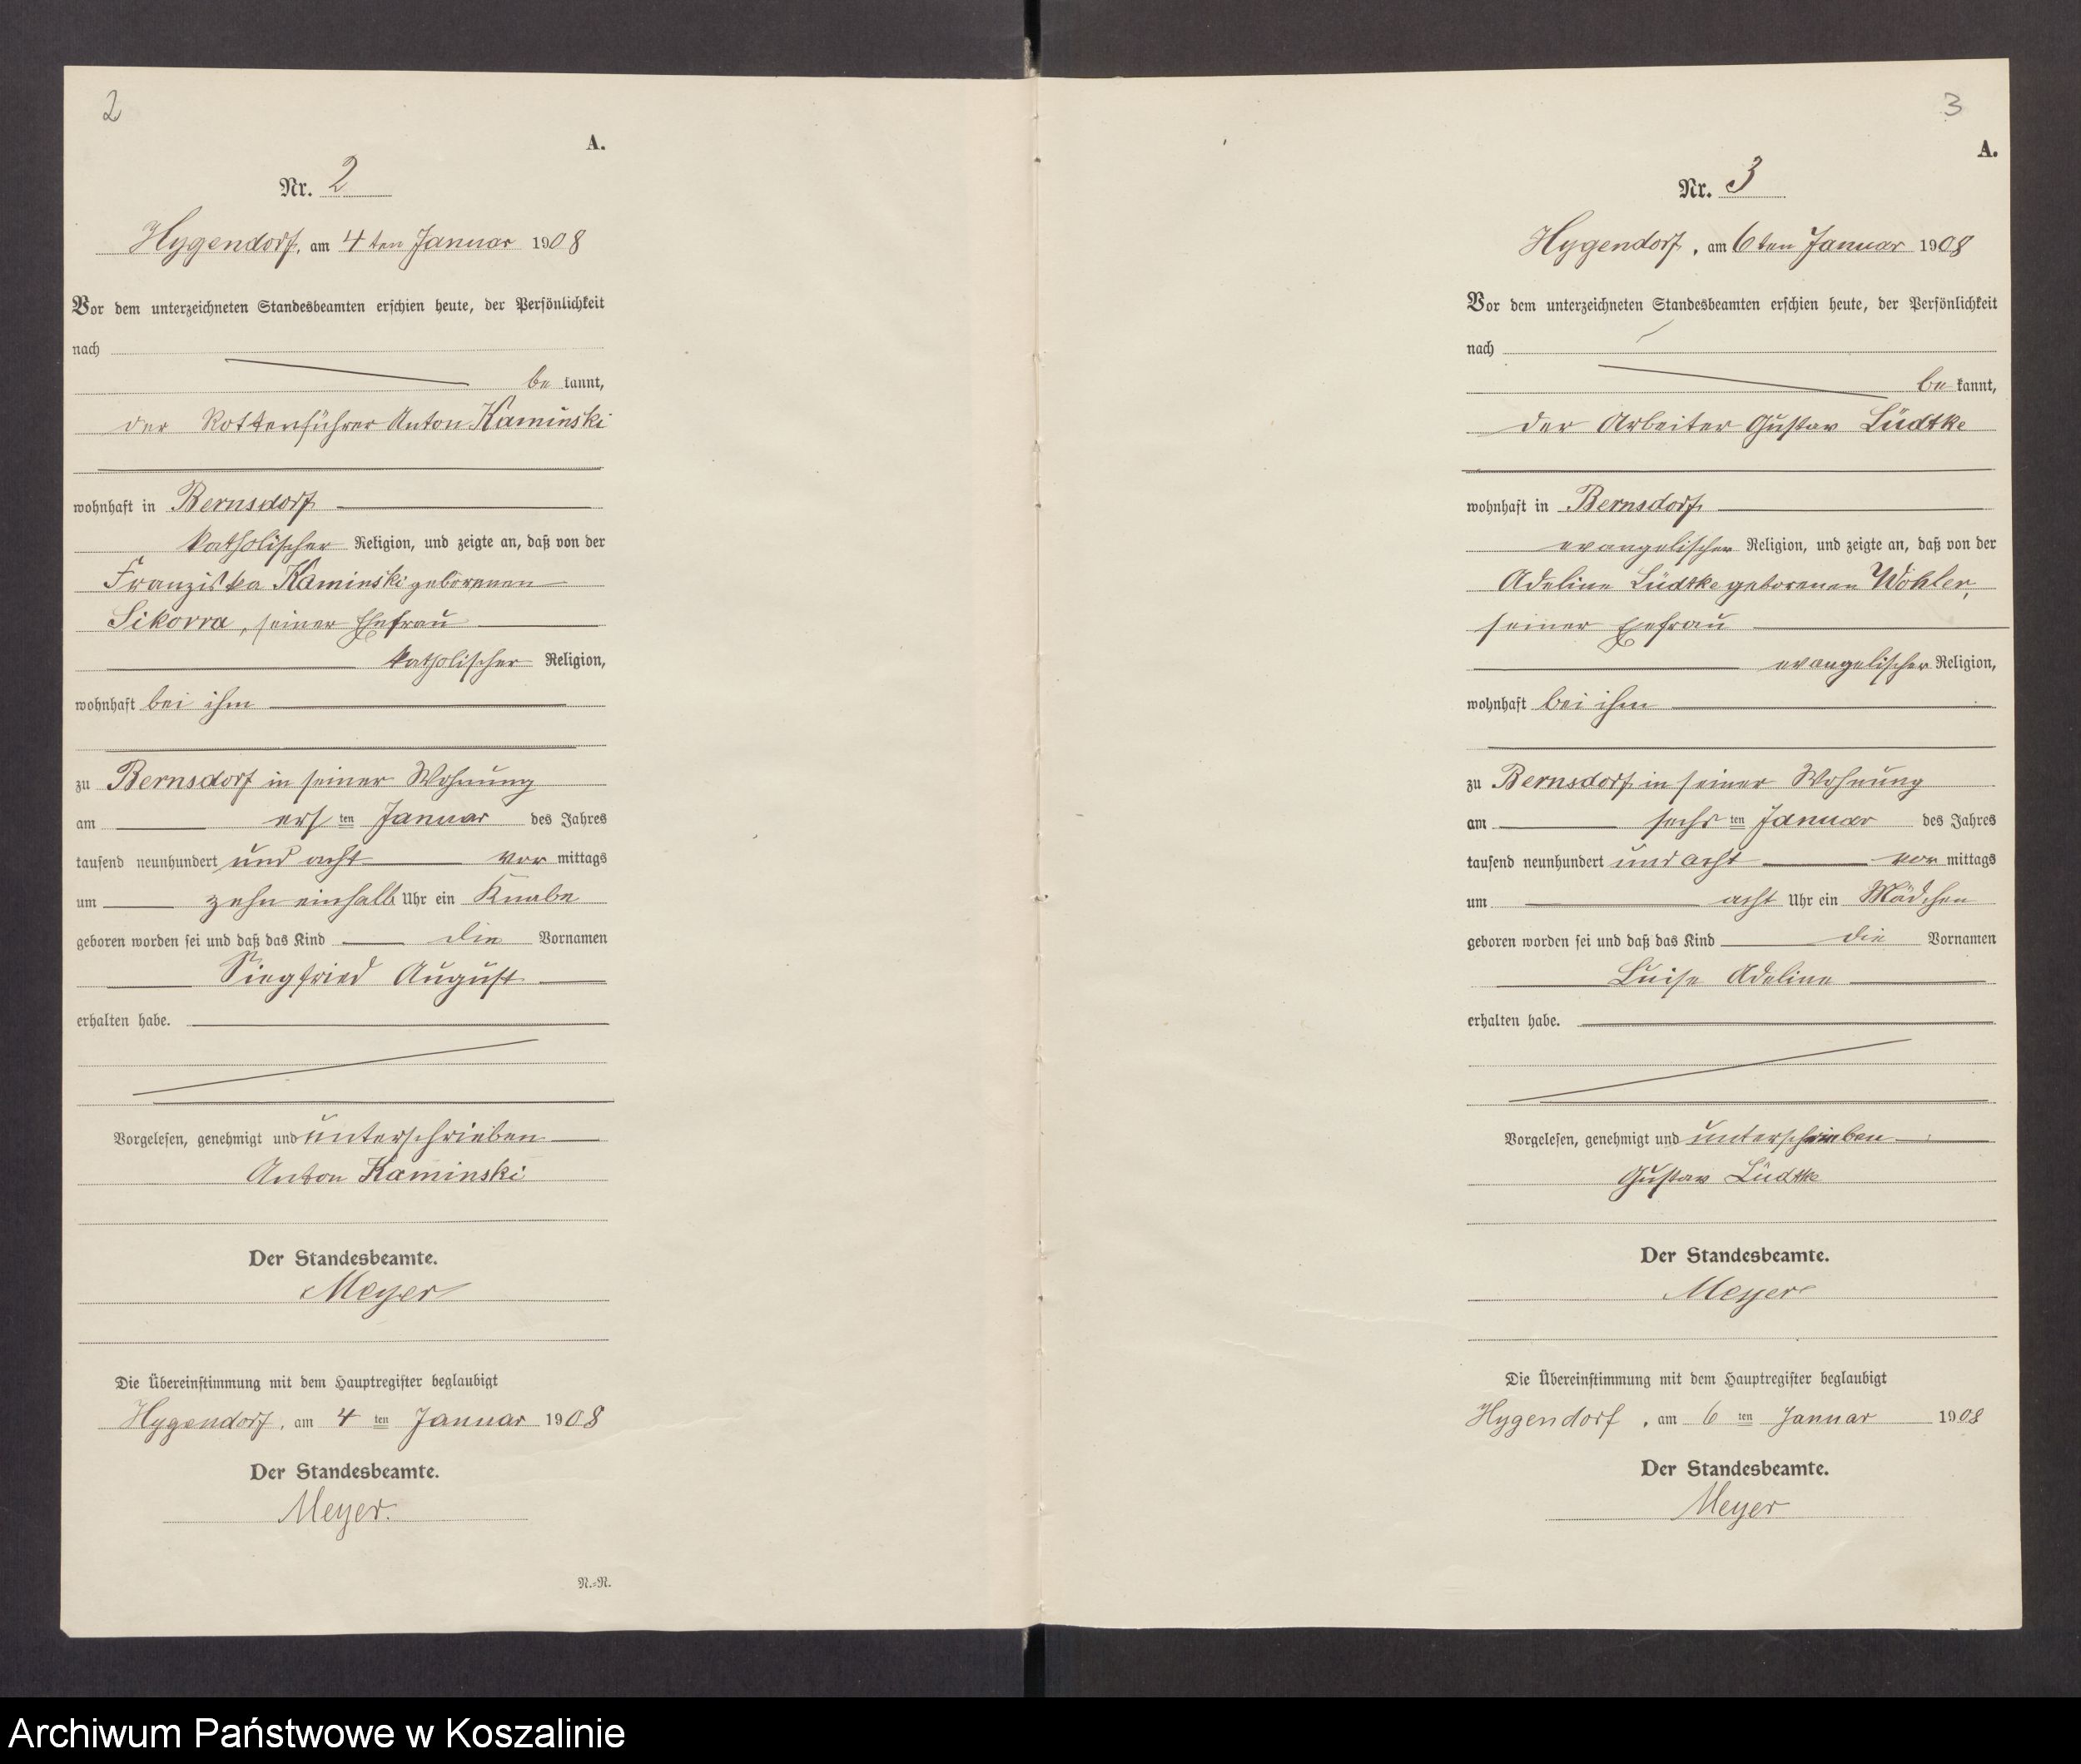 2
A.
Nr. 2
Hygendorf, am 4ten Januar 1908
Vor dem unterzeichneten Standesbeamten erschien heute, der Persönlichkeit
nach
be kannt,
der Rottenführer Anton Kaminski
wohnhaft in Bernsdorf
katholischer Religion, und zeigte an, daß von der
Franziska Kaminski geborenen
Sikorra, seiner Ehefrau
katholischer Religion,
wohnhaft bei ihm
zu Bernsdorf in seiner Wohnung
am ersten Januar des Jahres
tausend neunhundert und acht vor mittags
um zehn einhalb Uhr ein Knabe
geboren worden sei und daß das Kind die Vornamen
Siegfried August
erhalten habe.
Vorgelesen, genehmigt und unterschrieben
Anton Kaminski
Der Standesbeamte.
Meyer
Die Übereinstimmung mit dem Hauptregister beglaubigt
Hygendorf, am 4 ten Januar 1908
Der Standesbeamte.
Meyer.
N.=N.
3
A.
Nr. 3
Hygendorf, am 6ten Januar 1908
Vor dem unterzeichneten Standesbeamten erschien heute, der Persönlichkeit
nach
be kannt,
der Arbeiter Gustav Lüdtke
wohnhaft in Bernsdorf
evangelischer Religion, und zeigte an, daß von der
Adeline Lüdtke geborenen Wöhler,
seiner Ehefrau
evangelischer Religion,
wohnhaft bei ihm
zu Bernsdorf in seiner Wohnung
am sechsten Januar des Jahres
tausend neunhundert und acht vor mittags
um acht Uhr ein Mädchen
geboren worden sei und daß das Kind die Vornamen
Luise Adeline
erhalten habe.
Vorgelesen, genehmigt und unterschrieben
Gustav Lüdtke
Der Standesbeamte.
Meyer
Die Übereinstimmung mit dem Hauptregister beglaubigt
Hygendorf, am 6 ten Januar 1908
Der Standesbeamte.
Meyer
Archiwum Państwowe w Koszalinie